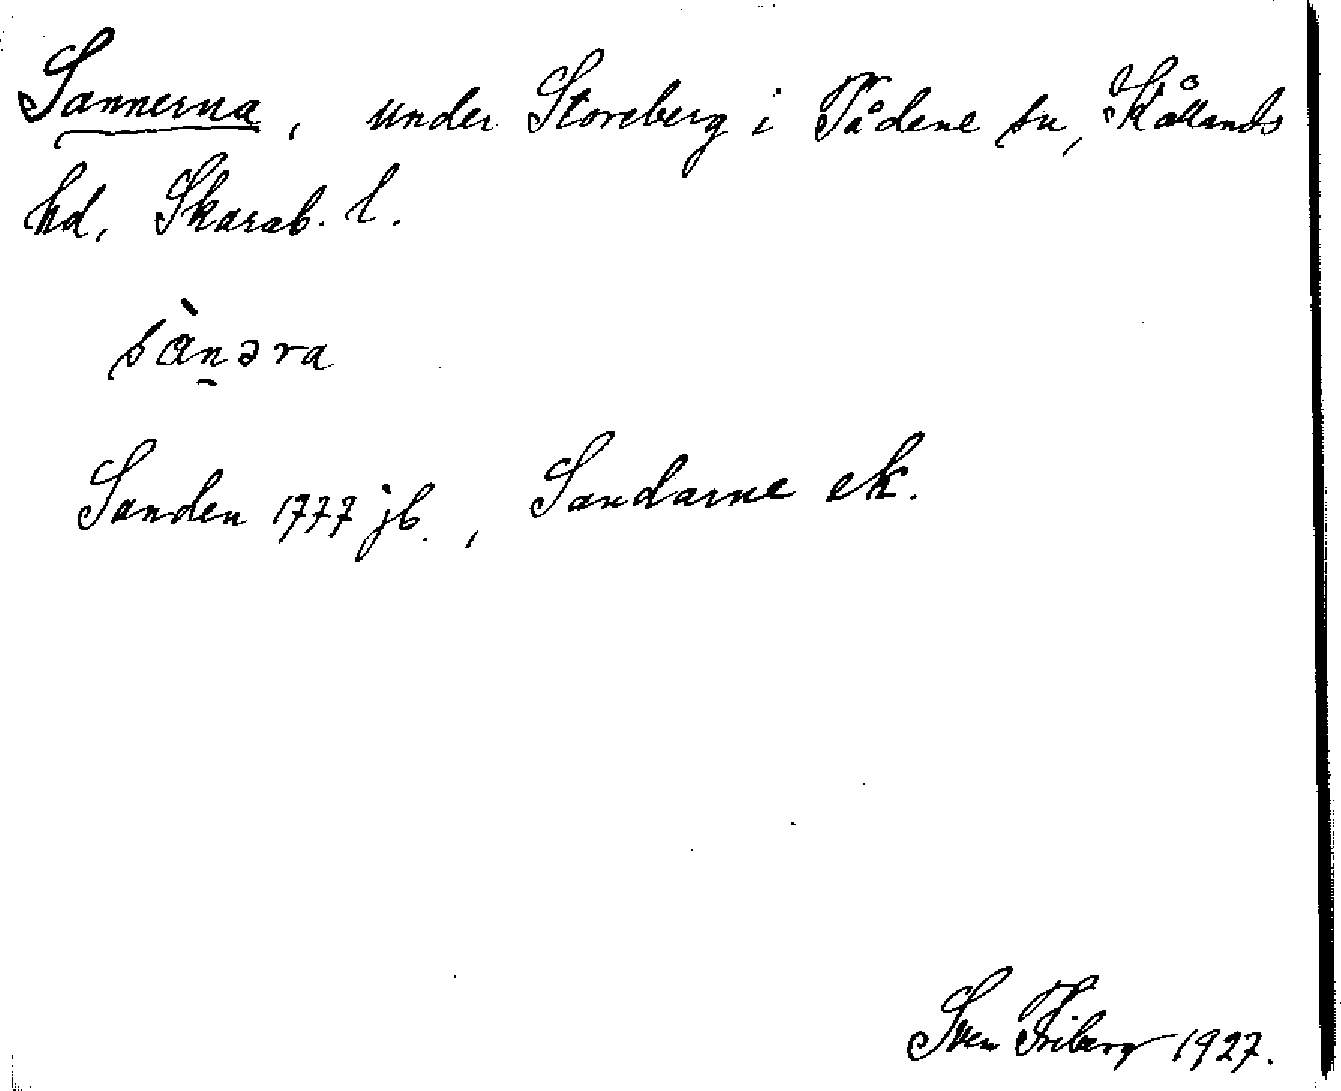 Sannerna, under Storeberg i Tådene sn, Kållands
hd, Skarab. l.
sànəra
Sanden 1777 jb., Sandarne ek.
Sven Friberg 1927.